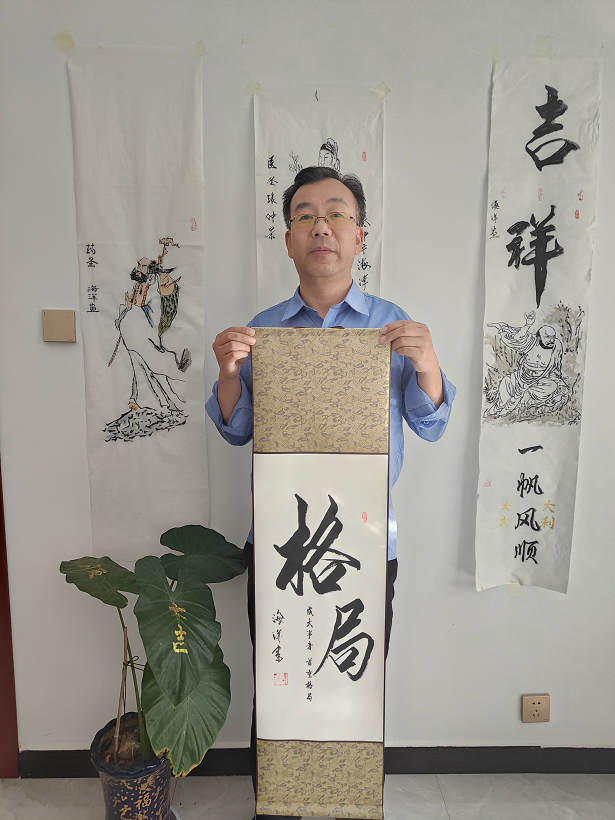 药圣 海洋画
医圣张仲景
吉祥
一帆风顺
大吉
大利
格局
成大事者 首重格局
海洋书
福